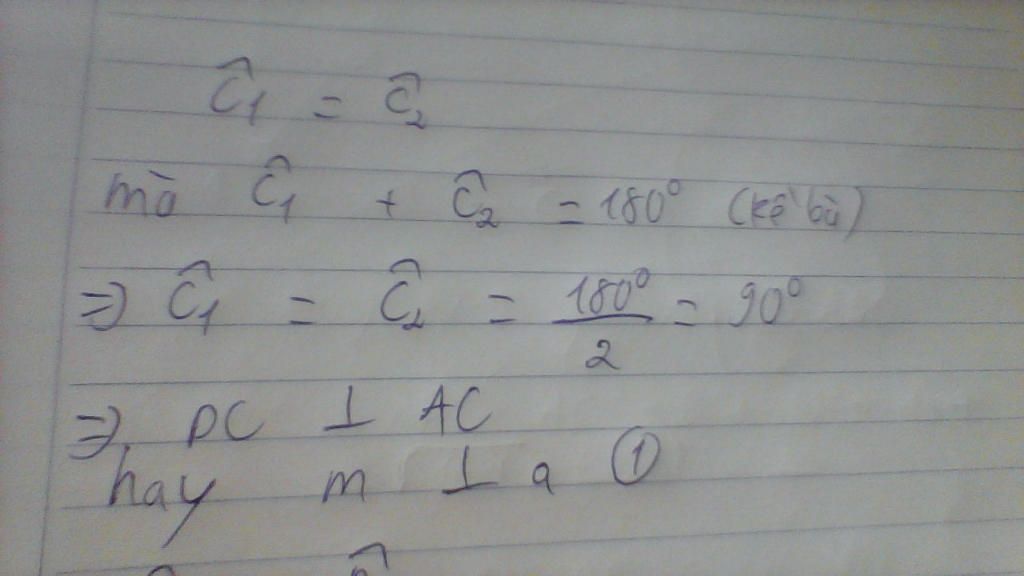 Ĉ₁ = Ĉ₂
mà Ĉ₁ + Ĉ₂ = 180° (kề bù)
=> Ĉ₁ = Ĉ₂ = 180°/2 = 90°
=> DC ⊥ AC
hay m ⊥ a ①